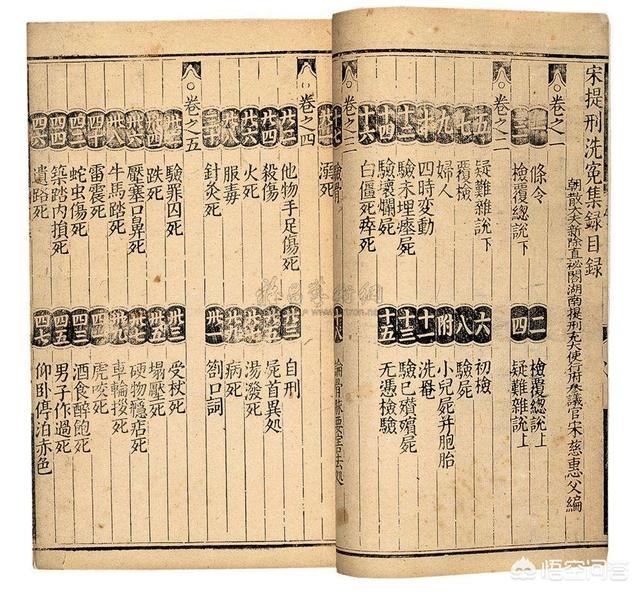 宋提刑洗冤集録目録
朝散大夫新除直祕閣湖南提刑充大使行府參議官宋慈惠父編
卷之一
一 條令 二 檢覆總說上
三 檢覆總說下 四 疑難雜說上
卷之二
五 疑難雜說下 六 初檢
七 覆檢 八 驗屍
九 婦人 附 小兒屍并胞胎
十 四時変動 十一 洗罨
十二 驗未埋瘞屍 十三 驗已殯屍
十四 驗壞爛屍 十五 无憑檢驗
十六 白僵死瘁死
卷之三
十七 驗骨 十八 論骨脉要害去処
溺死
卷之四
廿二 他物手足傷死 廿三 自刑
廿四 殺傷 廿五 屍首異処
廿六 火死 廿七 湯潑死
廿八 服毒 廿九 病死
三十 針灸死 卅一 劄口詞
卷之五
卅二 驗罪囚死 卅三 受杖死
卅四 跌死 卅五 塌壓死
卅六 壓塞口鼻死 卅七 硬物癮店死
卅八 牛馬踏死 卅九 車輪拶死
四十 雷震死 虎咬死
蛇虫傷死 酒食醉飽死
築踏内損死 四五 男子作過死
四六 遺路死 四七 仰卧停泊赤色
悟空问答